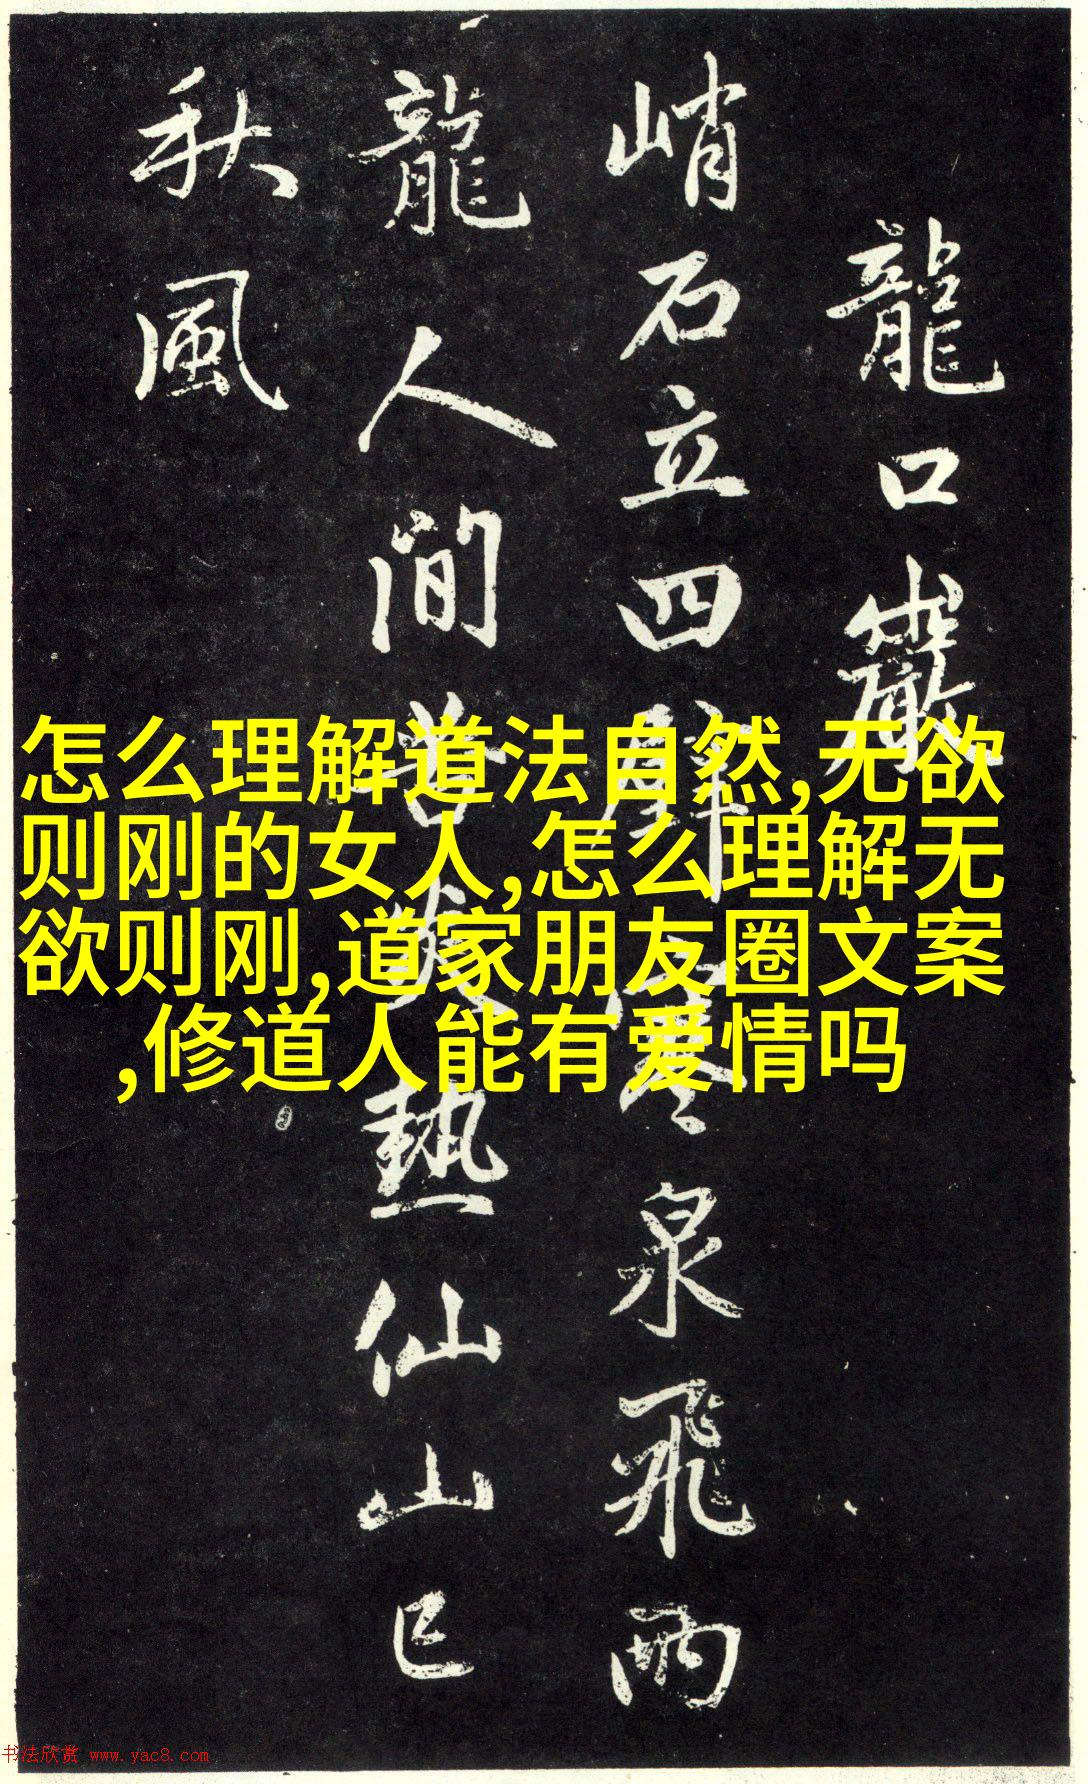 龍口巖
峭石立四壁寒泉飛兩
龍人間苦炎熱仙山已
秋風
怎么理解道法自然,无欲
则刚的女人,怎么理解无
欲则刚,道家朋友圈文案
,修道人能有爱情吗
书法欣赏 www.yac8.com